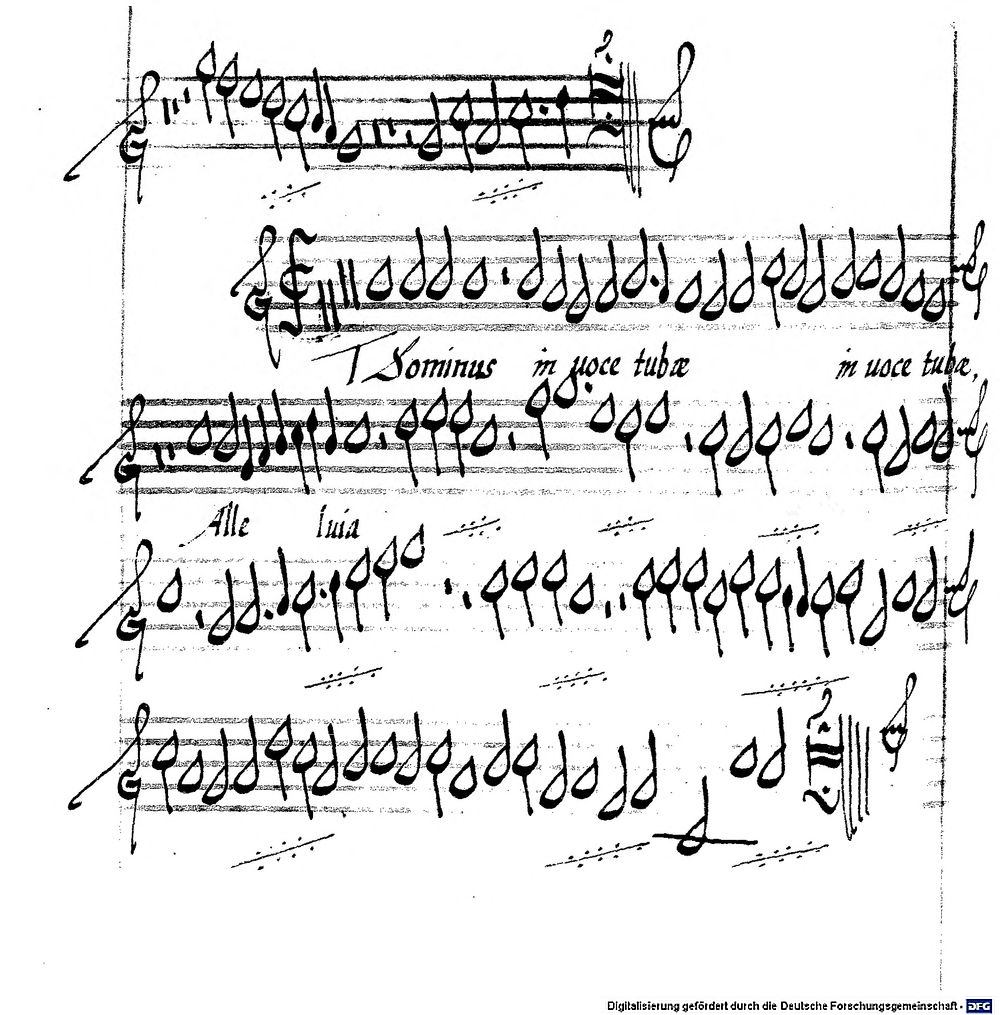 Dominus in uoce tubæ in uoce tubæ,
Alle luia
Digitalisierung gefördert durch die Deutsche Forschungsgemeinschaft - DFG